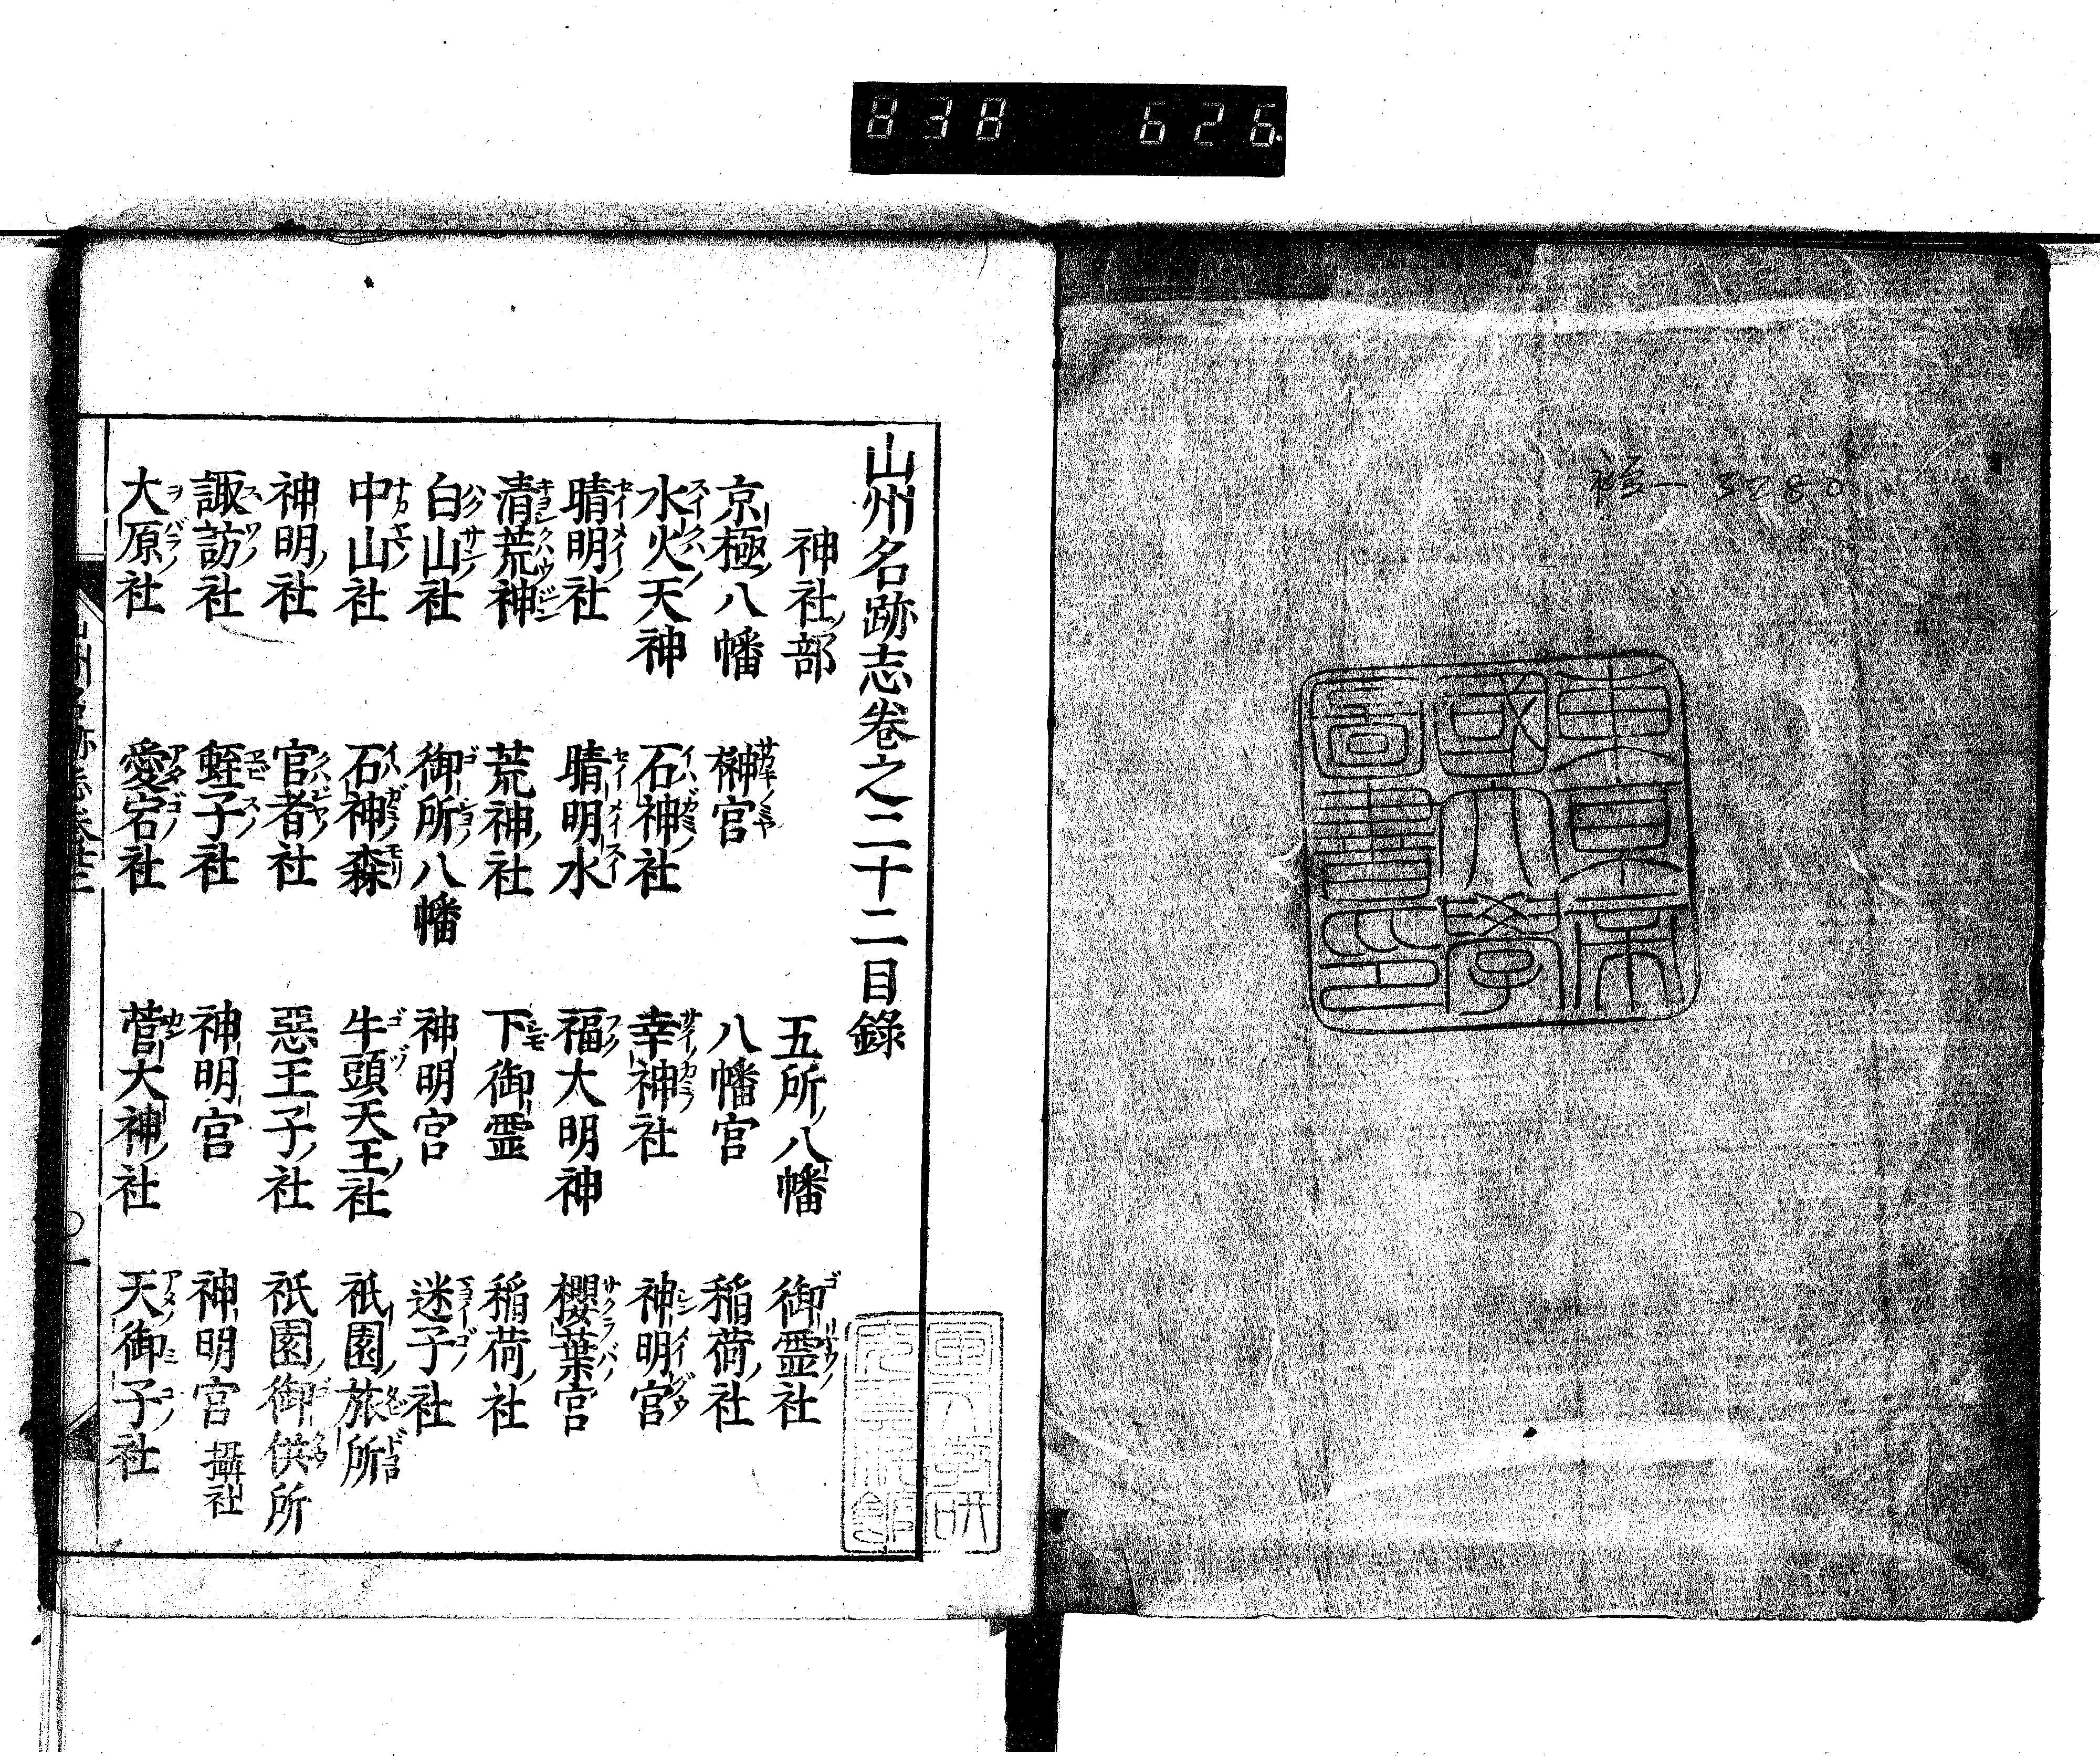 838 626
3280
東京帝國大學圖書印
山州名跡志卷之二十二目錄
神社ノ部 五所ノ八幡 御霊社
京極ノ八幡 榊宮 八幡宮 稲荷ノ社
水火天神 石神社 幸神社 神明宮
晴明社 晴明水 福大明神 櫻葉宮
清荒神 荒神ノ社 下御霊 稲荷ノ社
白山社 御所八幡 神明宮 迷子社
中山社 石神森 牛頭天王ノ社 祇園ノ旅所
神明ノ社 官者社 惡王子ノ社 祇園ノ御供所
諏訪社 蛭子社 神明宮 神明宮 攝社
大原社 愛宕社 菅大神ノ社 天御子社